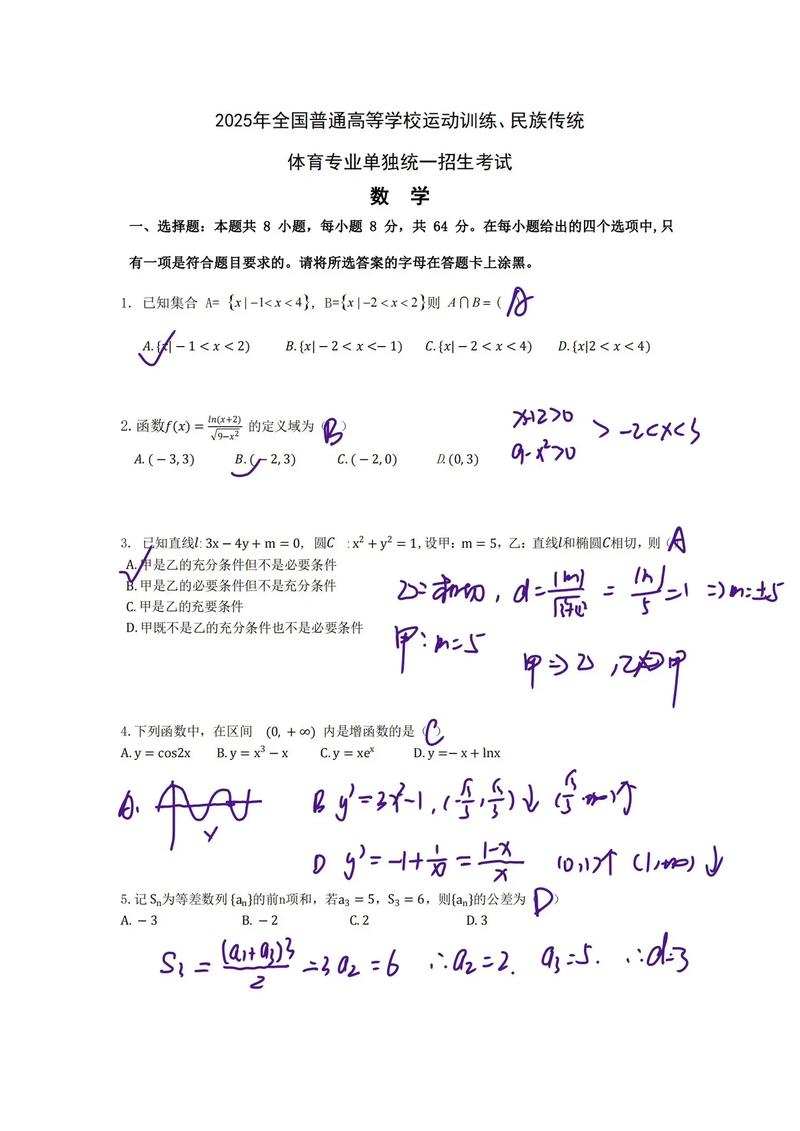 2025年全国普通高等学校运动训练、民族传统
体育专业单独统一招生考试
数 学
一、选择题：本题共 8 小题，每小题 8 分，共 64 分。在每小题给出的四个选项中,只
有一项是符合题目要求的。请将所选答案的字母在答题卡上涂黑。
1. 已知集合 A= {x|-1<x<4}, B={x|-2<x<2}则 A∩B=( A
A.{x|-1<x<2) B.{x|-2<x<-1) C.{x|-2<x<4) D.{x|2<x<4)
x+2>0
2.函数f(x)=ln(x+2)/√(9-x²) 的定义域为（B） > -2<x<3
9-x²>0
A.(-3,3) B.(-2,3) C.(-2,0) D.(0,3)
3. 已知直线l:3x-4y+m=0, 圆C :x²+y²=1,设甲：m=5，乙：直线l和椭圆C相切，则（A
A.甲是乙的充分条件但不是必要条件
B.甲是乙的必要条件但不是充分条件
乙=相切, d=|m|/√(3²+4²) = |m|/5=1 ⇒m=±5
C.甲是乙的充要条件
D.甲既不是乙的充分条件也不是必要条件
甲:m=5
甲⇒乙,乙⇏甲
4.下列函数中，在区间 (0,+∞) 内是增函数的是（C）
A.y=cos2x B.y=x³-x C.y=xeˣ D.y=-x+lnx
A. B y'=3x²-1,(-√3/3,√3/3)↓ (√3/3,+∞)↑
D y'=-1+1/x=(1-x)/x (0,1)↑ (1,+∞)↓
5.记Sₙ为等差数列{aₙ}的前n项和，若a₃=5，S₃=6，则{aₙ}的公差为（D）
A.-3 B.-2 C.2 D.3
S₃=(a₁+a₃)3/2=3a₂=6 ∴a₂=2. a₃=5. ∴d=3